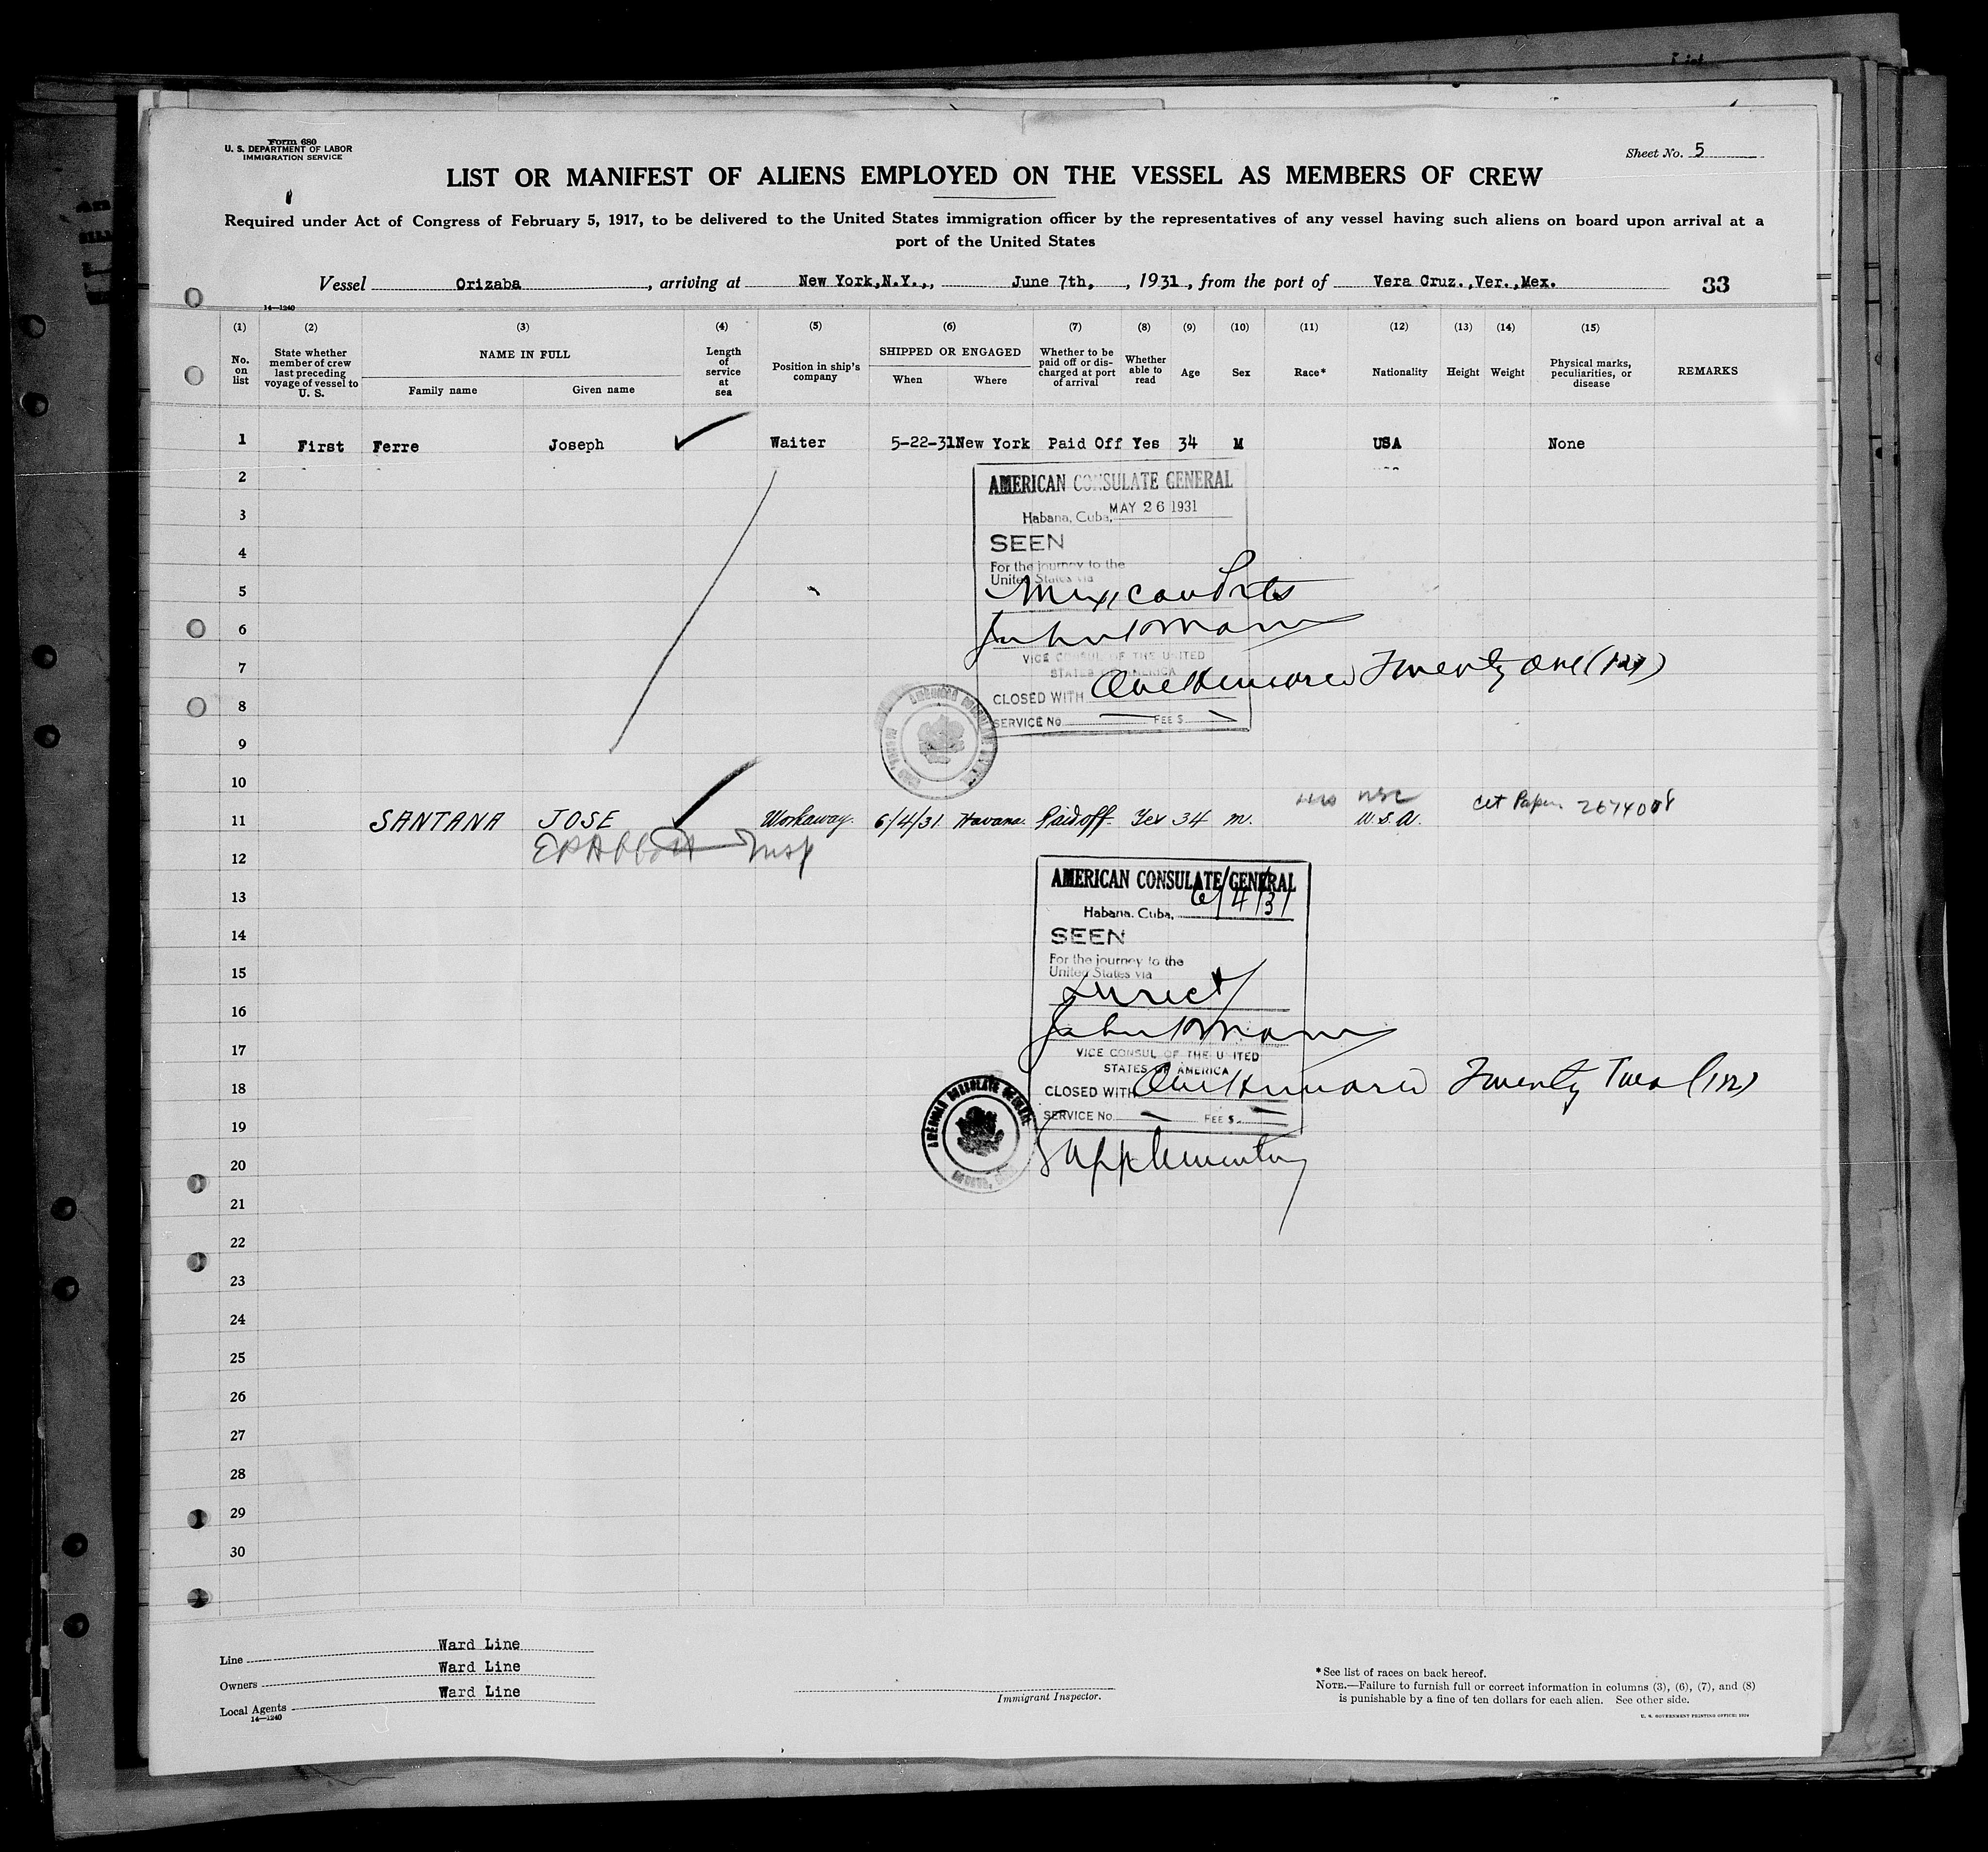 Form 680
U. S. DEPARTMENT OF LABOR
IMMIGRATION SERVICE
Sheet No. 5
LIST OR MANIFEST OF ALIENS EMPLOYED ON THE VESSEL AS MEMBERS OF CREW
Required under Act of Congress of February 5, 1917, to be delivered to the United States immigration officer by the representatives of any vessel having such aliens on board upon arrival at a
port of the United States
Vessel Orizaba, arriving at New York,N.Y.,, June 7th, , 1931, from the port of Vera Cruz.,Ver.,Mex. 33
14—1240
(1) (2) (3) (4) (5) (6) (7) (8) (9) (10) (11) (12) (13) (14) (15)
No. on list
State whether member of crew last preceding voyage of vessel to U. S.
NAME IN FULL
Family name Given name
Length of service at sea
Position in ship's company
SHIPPED OR ENGAGED
When Where
Whether to be paid off or discharged at port of arrival
Whether able to read
Age
Sex
Race*
Nationality
Height
Weight
Physical marks, peculiarities, or disease
REMARKS
1 First Ferre Joseph Waiter 5-22-31 New York Paid Off Yes 34 M USA None
2
AMERICAN CONSULATE GENERAL
3
Habana, Cuba, MAY 26 1931
4
SEEN
For the journey to the
United States via
5
Mexican Ports
6
7
VICE CONSUL OF THE UNITED
STATES OF AMERICA
CLOSED WITH One Hundred Twenty One (121)
8
SERVICE No. FEE $
9
10
11 SANTANA JOSE Workaway. 6/4/31 Havana. Paid off. Yes 34 m. U.S.A. Cit Paper 2674008
12 Insp
AMERICAN CONSULATE GENERAL
13
Habana, Cuba, 6/4/31
14
SEEN
15
For the journey to the
United States via
16
Direct
17
VICE CONSUL OF THE UNITED
STATES OF AMERICA
18
CLOSED WITH One Hundred Twenty Two (122)
SERVICE No. FEE $
19
AMERICAN CONSULATE GENERAL
20
Supplementary
21
22
23
24
25
26
27
28
29
30
Line Ward Line
Owners Ward Line
Local Agents Ward Line
14—1240
Immigrant Inspector.
*See list of races on back hereof.
NOTE.—Failure to furnish full or correct information in columns (3), (6), (7), and (8)
is punishable by a fine of ten dollars for each alien. See other side.